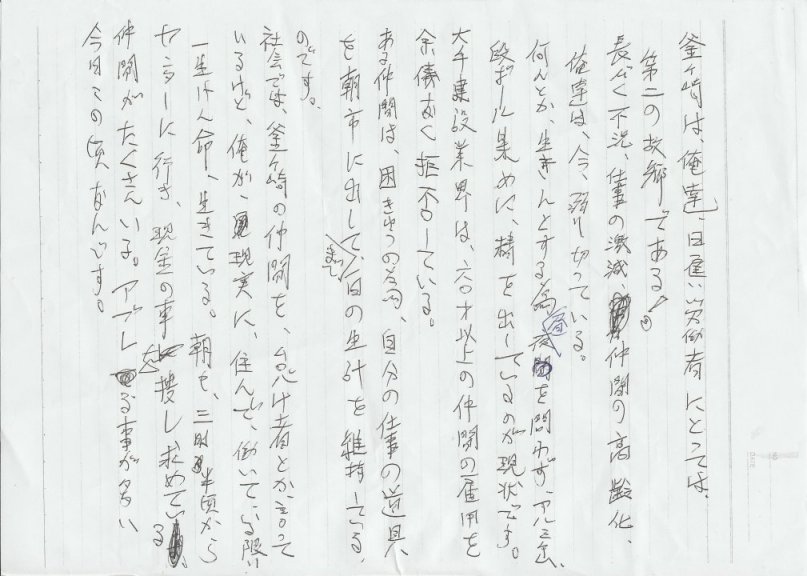 釜ヶ崎は、俺達、日雇い労働者にとっては、
第二の故郷である!
長びく不況、仕事の激減、仲間の高齢化、
俺達は、今、弱り切っている。
何んとか、生きんとする為、昼夜を問わず、アルミ缶、
段ボール集めに、精を出しているのが現状です。
大手建設業界は、六〇才以上の仲間の雇用を
余儀なく拒否している。
ある仲間は、困きゅうの為、自分の仕事の道具、
を朝市に出してまで、一日の生計を維持している、
のです。
社会では、釜ヶ崎の仲間を、なまけ者とか言って
いるけれど、俺が、現実に、住んで、働いている限り
一生けん命、生きている。朝も、三時半頃から
センターに行き、現金の車を捜し求めている。
仲間がたくさんいる。アブレる事が多い、
今日この頃なんです。